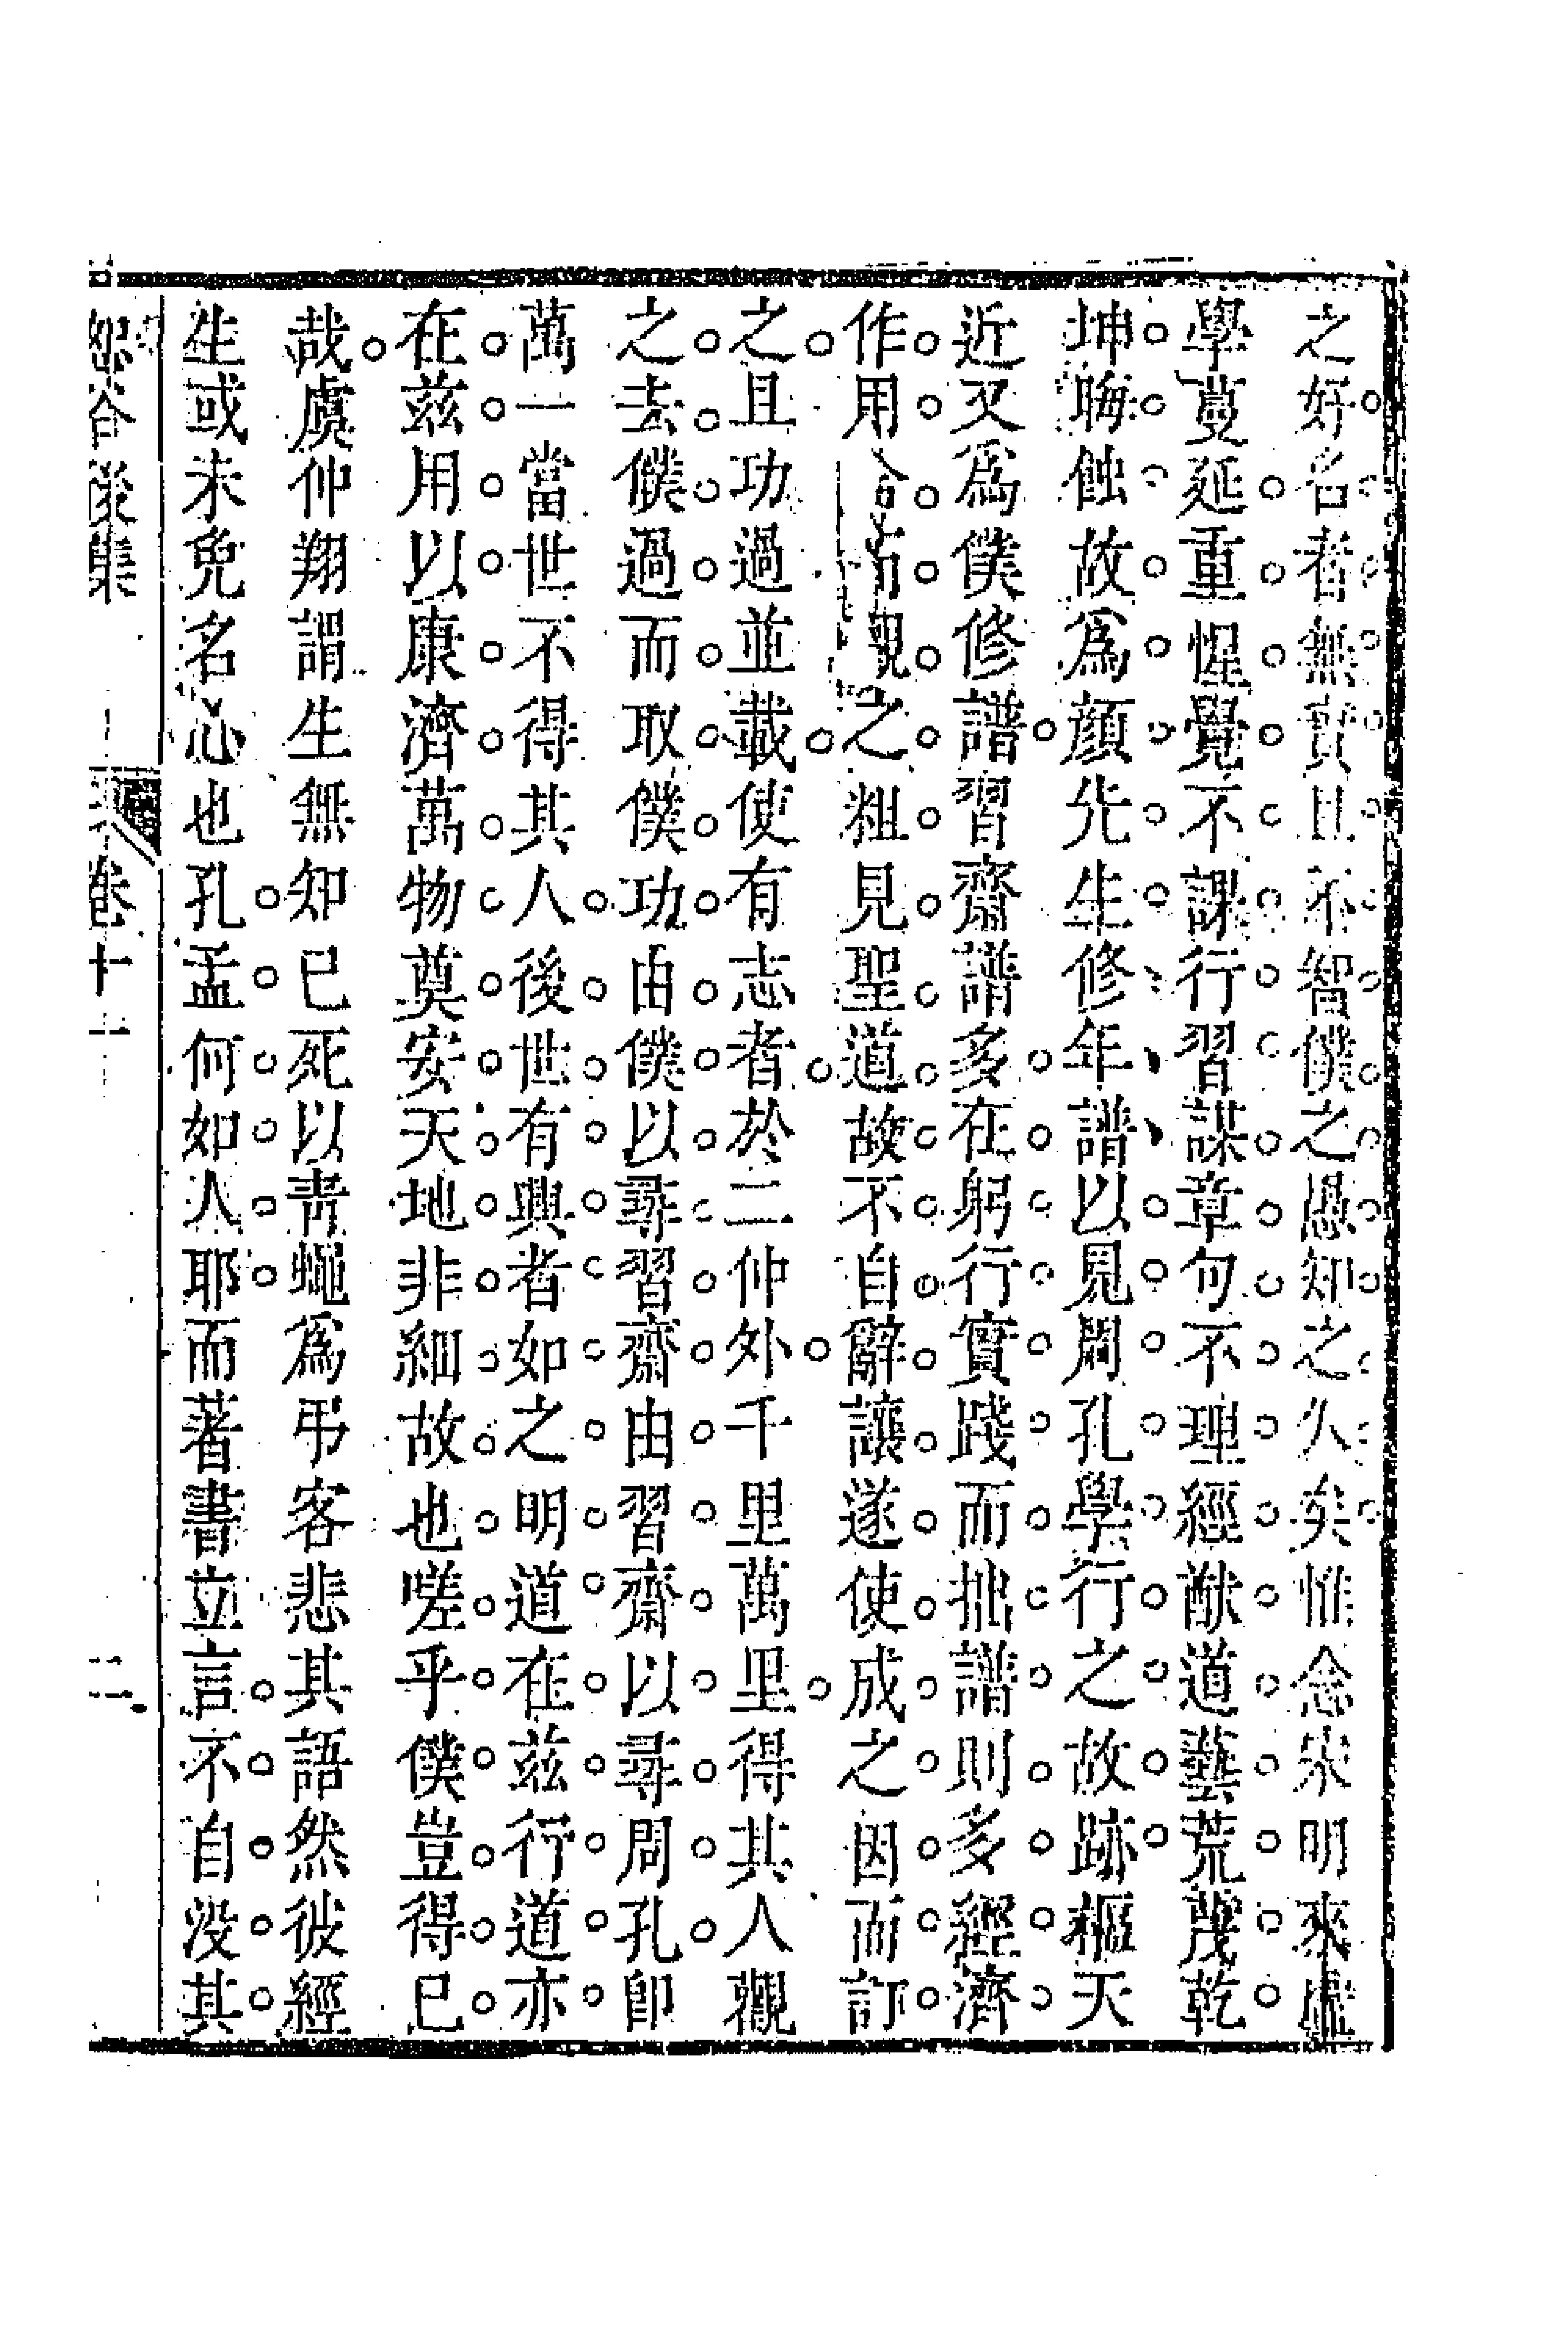 之好名者無實且不智僕之愚知之久矣惟念宋明來虛
學蔓延重惺覺不課行習謀章句不理經猷道藝荒茂乾
坤晦蝕故爲顏先生修年譜以見周孔學行之故跡樞天
近又爲僕修譜習齋譜多在躬行實踐而拙譜則多經濟
作用 之粗見聖道故不自辭讓遂使成之因而訂
之且功過並載使有志者於二仲外千里萬里得其人觀
之去僕過而取僕功由僕以尋習齋由習齋以尋周孔卽
萬一當世不得其人後世有興者如之明道在兹行道亦
在兹用以康濟萬物奠安天地非細故也嗟乎僕豈得已
哉虞仲翔謂生無知已死以靑蠅爲弔客悲其語然彼經
生或未免名心也孔孟何如人耶而著書立言不自没其
恕谷後集
卷十一
二